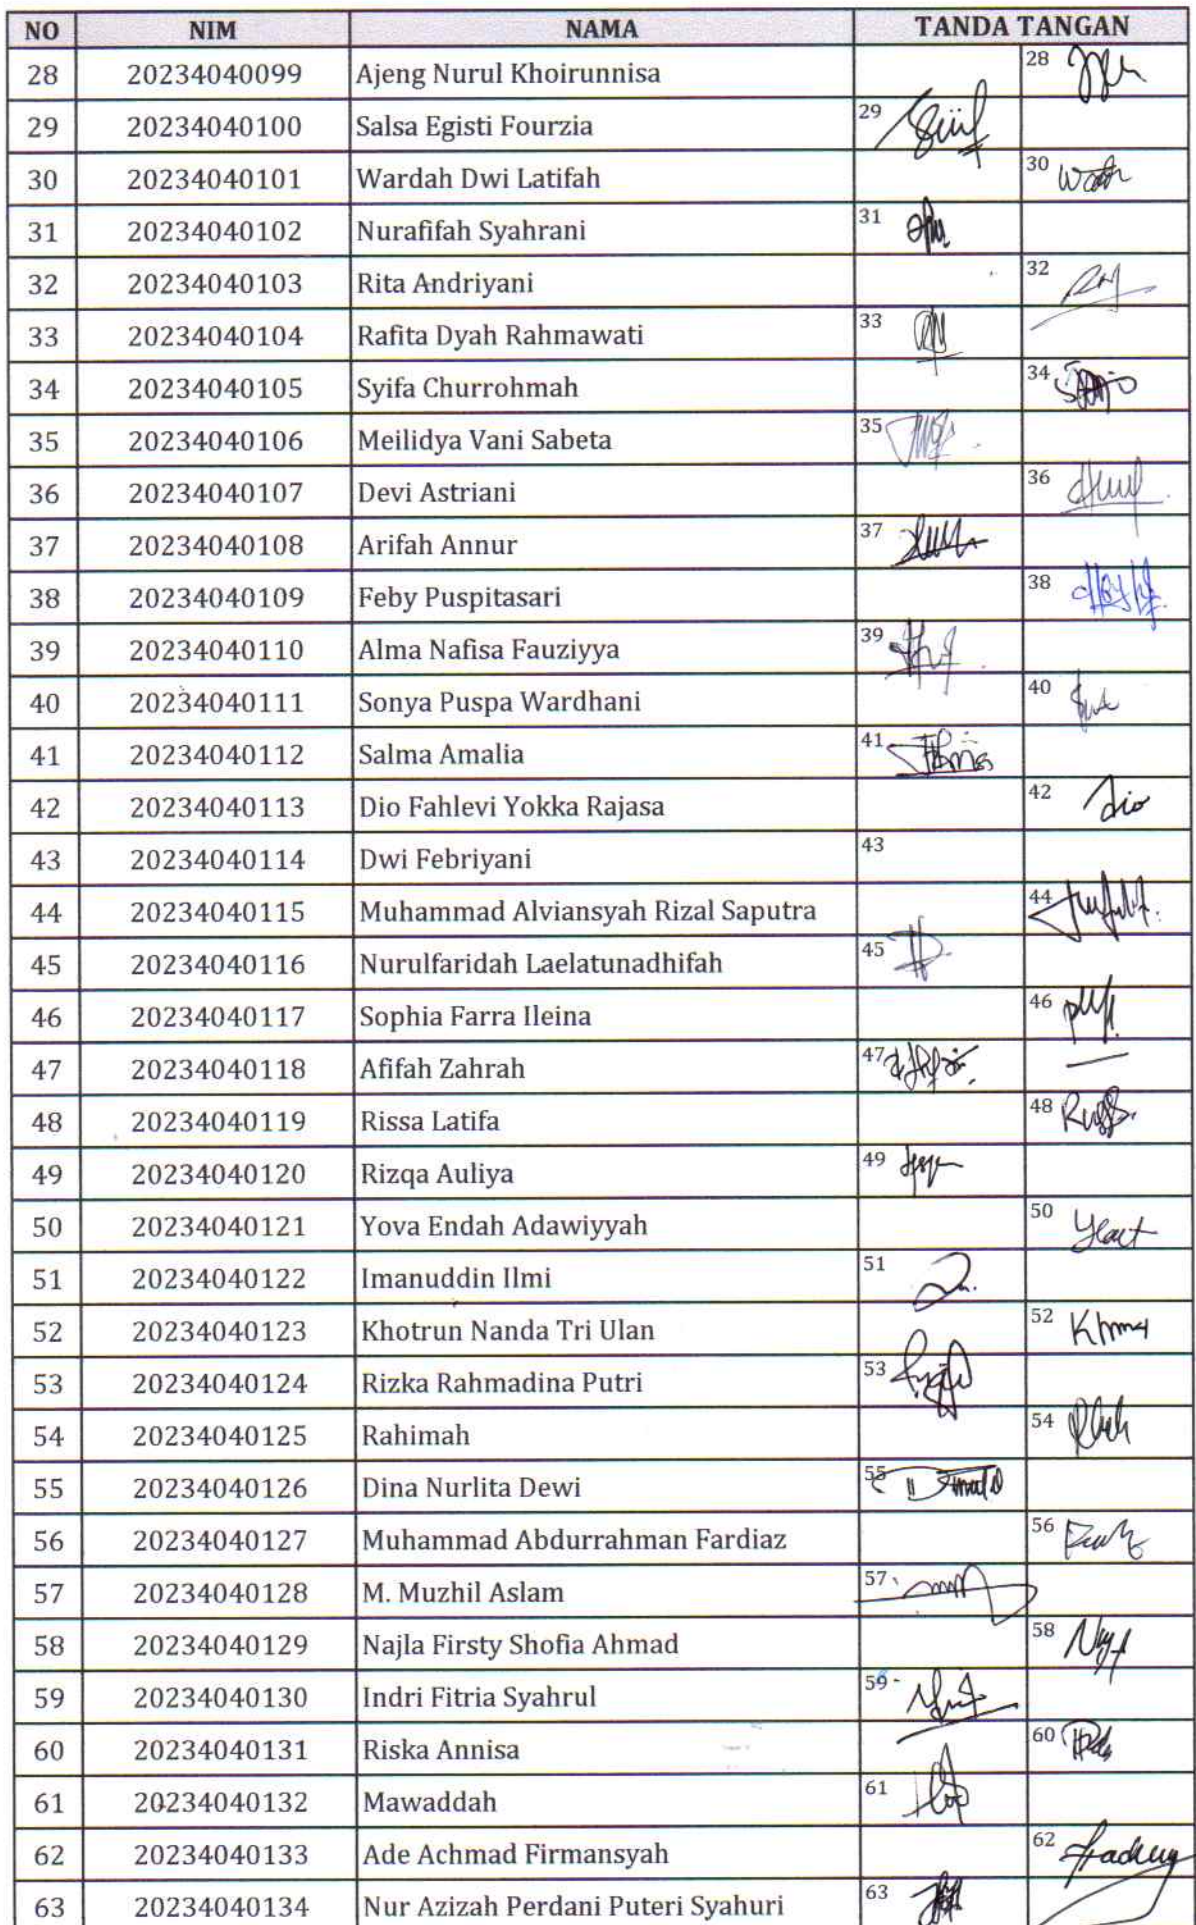 NO NIM NAMA TANDA TANGAN
28 20234040099 Ajeng Nurul Khoirunnisa 28
29 20234040100 Salsa Egisti Fourzia 29
30 20234040101 Wardah Dwi Latifah 30
31 20234040102 Nurafifah Syahrani 31
32 20234040103 Rita Andriyani 32
33 20234040104 Rafita Dyah Rahmawati 33
34 20234040105 Syifa Churrohmah 34
35 20234040106 Meilidya Vani Sabeta 35
36 20234040107 Devi Astriani 36
37 20234040108 Arifah Annur 37
38 20234040109 Feby Puspitasari 38
39 20234040110 Alma Nafisa Fauziyya 39
40 20234040111 Sonya Puspa Wardhani 40
41 20234040112 Salma Amalia 41
42 20234040113 Dio Fahlevi Yokka Rajasa 42 Dio
43 20234040114 Dwi Febriyani 43
44 20234040115 Muhammad Alviansyah Rizal Saputra 44
45 20234040116 Nurulfaridah Laelatunadhifah 45
46 20234040117 Sophia Farra Ileina 46
47 20234040118 Afifah Zahrah 47
48 20234040119 Rissa Latifa 48
49 20234040120 Rizqa Auliya 49
50 20234040121 Yova Endah Adawiyyah 50
51 20234040122 Imanuddin Ilmi 51
52 20234040123 Khotrun Nanda Tri Ulan 52
53 20234040124 Rizka Rahmadina Putri 53
54 20234040125 Rahimah 54
55 20234040126 Dina Nurlita Dewi 55
56 20234040127 Muhammad Abdurrahman Fardiaz 56
57 20234040128 M. Muzhil Aslam 57
58 20234040129 Najla Firsty Shofia Ahmad 58
59 20234040130 Indri Fitria Syahrul 59
60 20234040131 Riska Annisa 60
61 20234040132 Mawaddah 61
62 20234040133 Ade Achmad Firmansyah 62
63 20234040134 Nur Azizah Perdani Puteri Syahuri 63